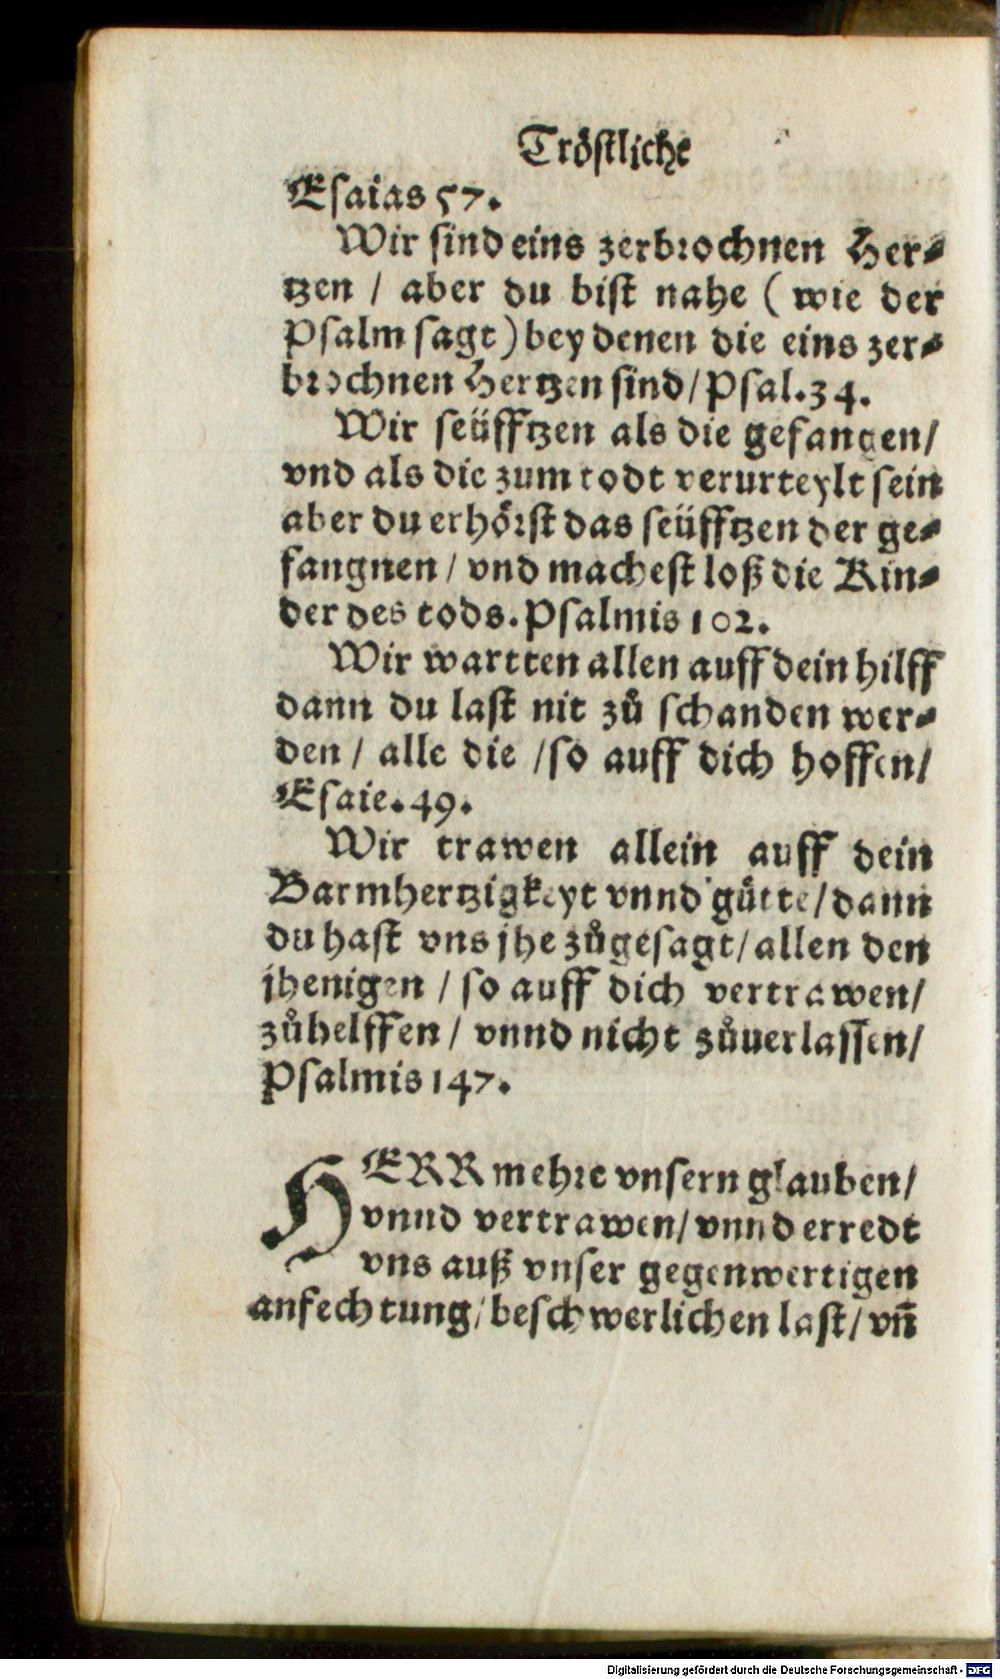 Tröſtliche
Eſaias 57.
Wir ſind eins zerbrochnen Her⸗
tzen / aber du biſt nahe ( wie der
Pſalm ſagt) bey denen die eins zer⸗
brochnen Hertzen ſind / Pſal. 34.
Wir ſeüfftzen als die gefangen /
vnd als die zum todt verurteylt ſein
aber du erhörſt das ſeüfftzen der ge⸗
fangnen / vnd macheſt loß die Kin⸗
der des tods. Pſalmis 102.
Wir wartten allen auff dein hilff
dann du laſt nit zů ſchanden wer⸗
den / alle die / ſo auff dich hoffen /
Eſaie. 49.
Wir trawen allein auff dein
Barmhertzigkeyt vnnd gütte / dann
du haſt vns jhe zůgeſagt / allen den
jhenigen / ſo auff dich vertrawen /
zůhelffen / vnnd nicht zůuerlaſſen /
Pſalmis 147.
HERR mehre vnſern glauben /
vnnd vertrawen / vnnd erredt
vns auß vnſer gegenwertigen
anfechtung / beſchwerlichen laſt / vn̄
Digitalisierung gefördert durch die Deutsche Forschungsgemeinschaft - DFG